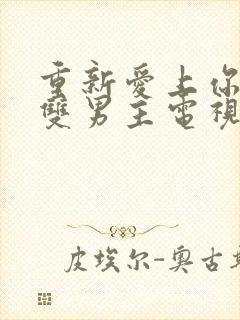 重新愛上你
雙男主電視
皮埃尔-奥古